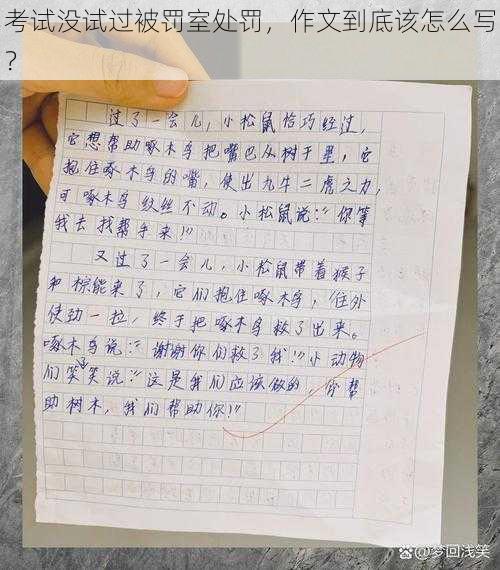 考试没试过被罚室处罚，作文到底该怎么写
？
过了一会儿，小松鼠恰巧经过，
它想帮助啄木鸟把嘴巴从树干里，它
抱住啄木鸟的嘴，使出九牛二虎之力，
可啄木鸟纹丝不动。小松鼠说：“你等
我去找帮手来！”
又过了一会儿，小松鼠带着猴子
和棕能来了，它们抱住啄木鸟，往外
使劲一拉，终于把啄木鸟救了出来。
啄木鸟说：“谢谢你们救了我！”小动物
们笑笑说：“这是我们应该做的，你帮
助树木，我们帮助你！”
@梦回浅笑